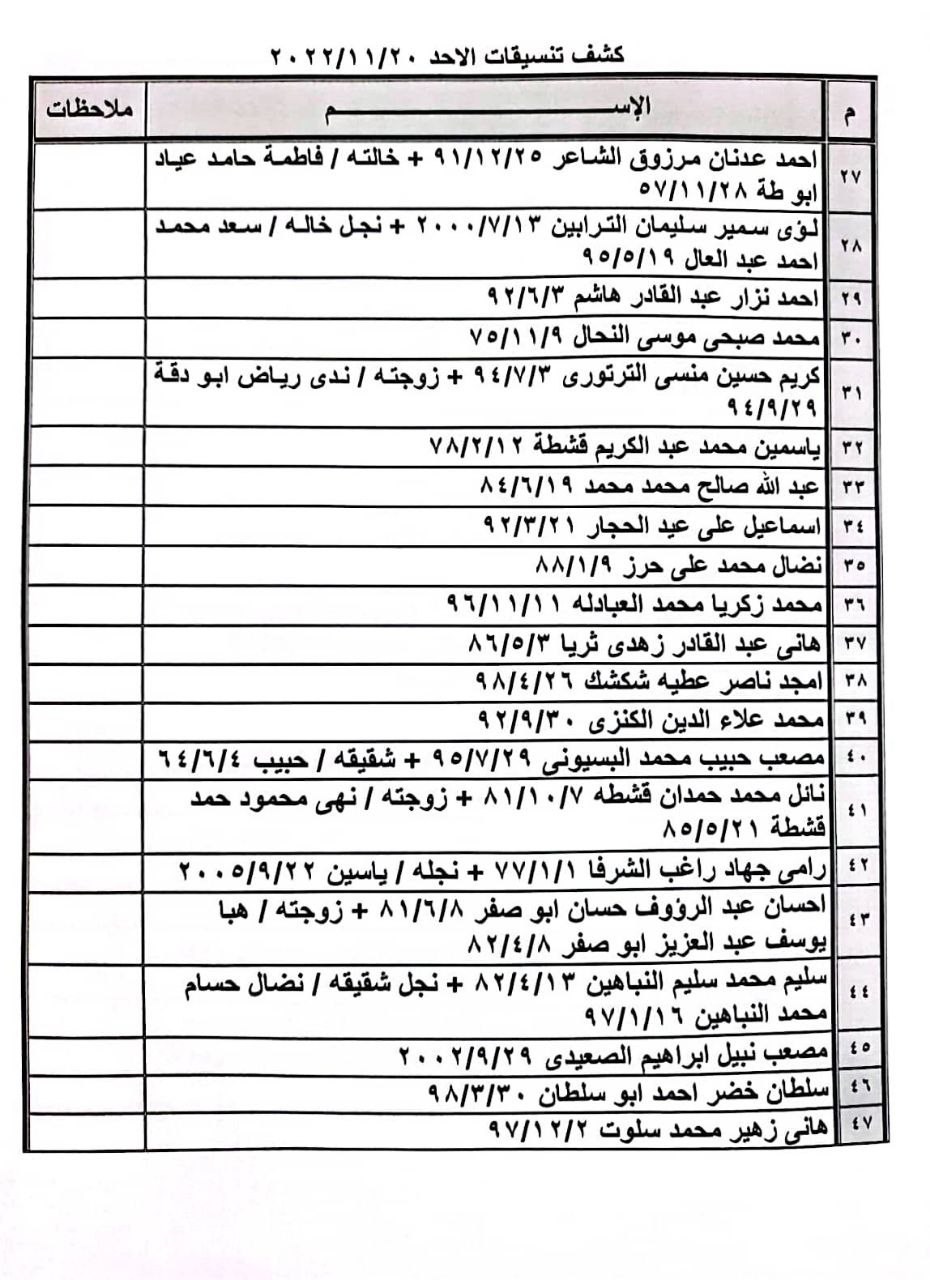 كشف تنسيقات الاحد ٢٠٢٢/١١/٢٠
م الإســـــــم ملاحظات
٢٧ احمد عدنان مرزوق الشاعر ٩١/١٢/٢٥ + خالته / فاطمة حامد عياد
ابو طة ٥٧/١١/٢٨
٢٨ لؤى سمير سليمان الترابين ٢٠٠٠/٧/١٣ + نجل خاله / سعد محمد
احمد عبد العال ٩٥/٥/١٩
٢٩ احمد نزار عبد القادر هاشم ٩٢/٦/٣
٣٠ محمد صبحى موسى النحال ٧٥/١١/٩
٣١ كريم حسين منسى الترتورى ٩٤/٧/٣ + زوجته / ندى رياض ابو دقة
٩٤/٩/٢٩
٣٢ ياسمين محمد عبد الكريم قشطة ٧٨/٢/١٢
٣٣ عبد الله صالح محمد محمد ٨٤/٦/١٩
٣٤ اسماعيل على عيد الحجار ٩٢/٣/٢١
٣٥ نضال محمد على حرز ٨٨/١/٩
٣٦ محمد زكريا محمد العبادله ٩٦/١١/١١
٣٧ هانى عبد القادر زهدى ثريا ٨٦/٥/٣
٣٨ امجد ناصر عطيه شكشك ٩٨/٤/٢٦
٣٩ محمد علاء الدين الكنزى ٩٢/٩/٣٠
٤٠ مصعب حبيب محمد البسيونى ٩٥/٧/٢٩ + شقيقه / حبيب ٦٤/٦/٤
٤١ نائل محمد حمدان قشطه ٨١/١٠/٧ + زوجته / نهى محمود حمد
قشطة ٨٥/٥/٢١
٤٢ رامى جهاد راغب الشرفا ٧٧/١/١ + نجله / ياسين ٢٠٠٥/٩/٢٢
٤٣ احسان عبد الرؤوف حسان ابو صفر ٨١/٦/٨ + زوجته / هبا
يوسف عبد العزيز ابو صفر ٨٢/٤/٨
٤٤ سليم محمد سليم النباهين ٨٢/٤/١٣ + نجل شقيقه / نضال حسام
محمد النباهين ٩٧/١/١٦
٤٥ مصعب نبيل ابراهيم الصعيدى ٢٠٠٢/٩/٢٩
٤٦ سلطان خضر احمد ابو سلطان ٩٨/٣/٣٠
٤٧ هانى زهير محمد سلوت ٩٧/١٢/٢